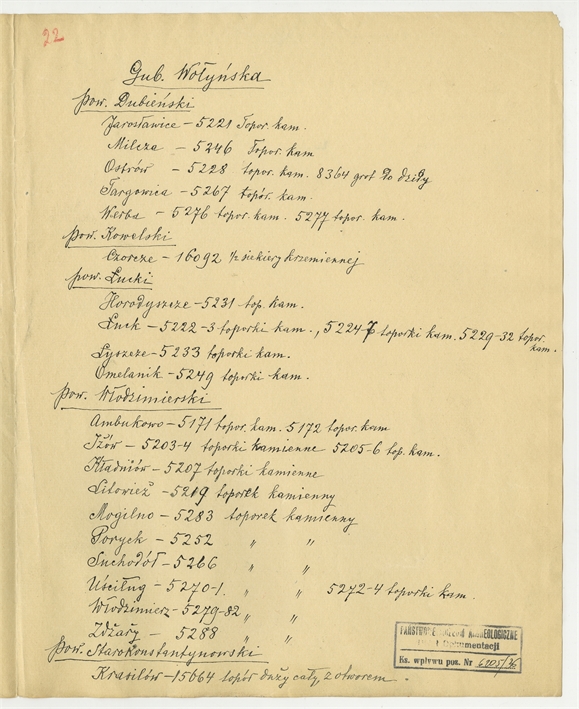 22
Gub. Wołyńska
pow. Dubieński
Jarosławice – 5221 Topor. kam.
Milcza – 5246 Topor. kam
Ostrów – 5228 topor. kam. 8364 grot do dzidy
Targowica – 5267 topór. kam.
Werba – 5276 topor. kam. 5277 topor. kam.
pow. Kowelski
Czorcze – 16092 1/2 siekiery krzemiennej
pow. Łucki
Horodyszcze – 5231 top. kam.
Łuck – 5222-3 toporki kam., 5224-7 toporki kam. 5229-32 topor. kam.
Łyszcze – 5233 toporki kam.
Omelanik – 5249 toporki kam.
pow. Włodzimierski
Ambukowo – 5171 topor. kam. 5172 topor. kam
Iżów – 5203-4 toporki kamienne 5205-6 top. kam.
Kładniów – 5207 toporki kamienne
Litowież – 5219 toporek kamienny
Mogilno – 5283 toporek kamienny
Poryck – 5252 " "
Suchodół – 5266 " "
Uściług – 5270-1. " " 5272-4 toporki kam.
Włodzimierz – 5279-82 " "
Zdżary – 5288 " "
pow. Starokonstantynowski
Krasiłów – 15664 topór duży cały, z otworem.
PAŃSTWOWE MUZEUM ARCHEOLOGICZNE
Dział Dokumentacji
Ks. wpływu pos. Nr 6205/36